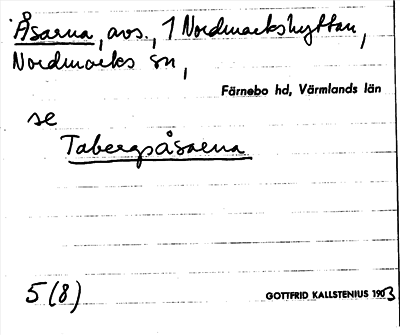 Åsarna, avs., 1 Nordmarkshyttan,
Nordmarks sn,
Färnebo hd, Värmlands län
se
Tabergsåsarna
5 (8)
GOTTFRID KALLSTENIUS 1903